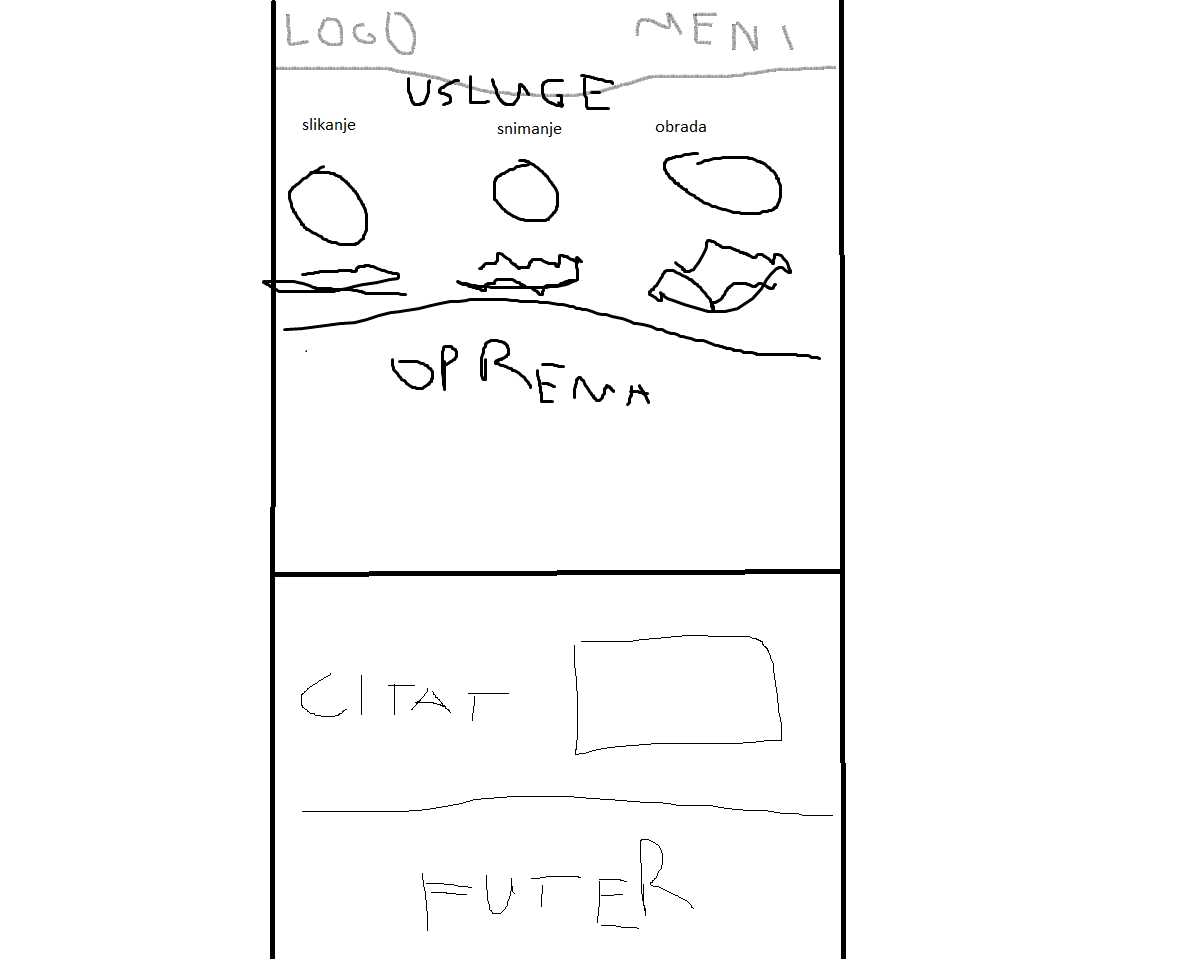 LOGO MENI
USLUGE
slikanje snimanje obrada
OPREMA
CITAT
FUTER